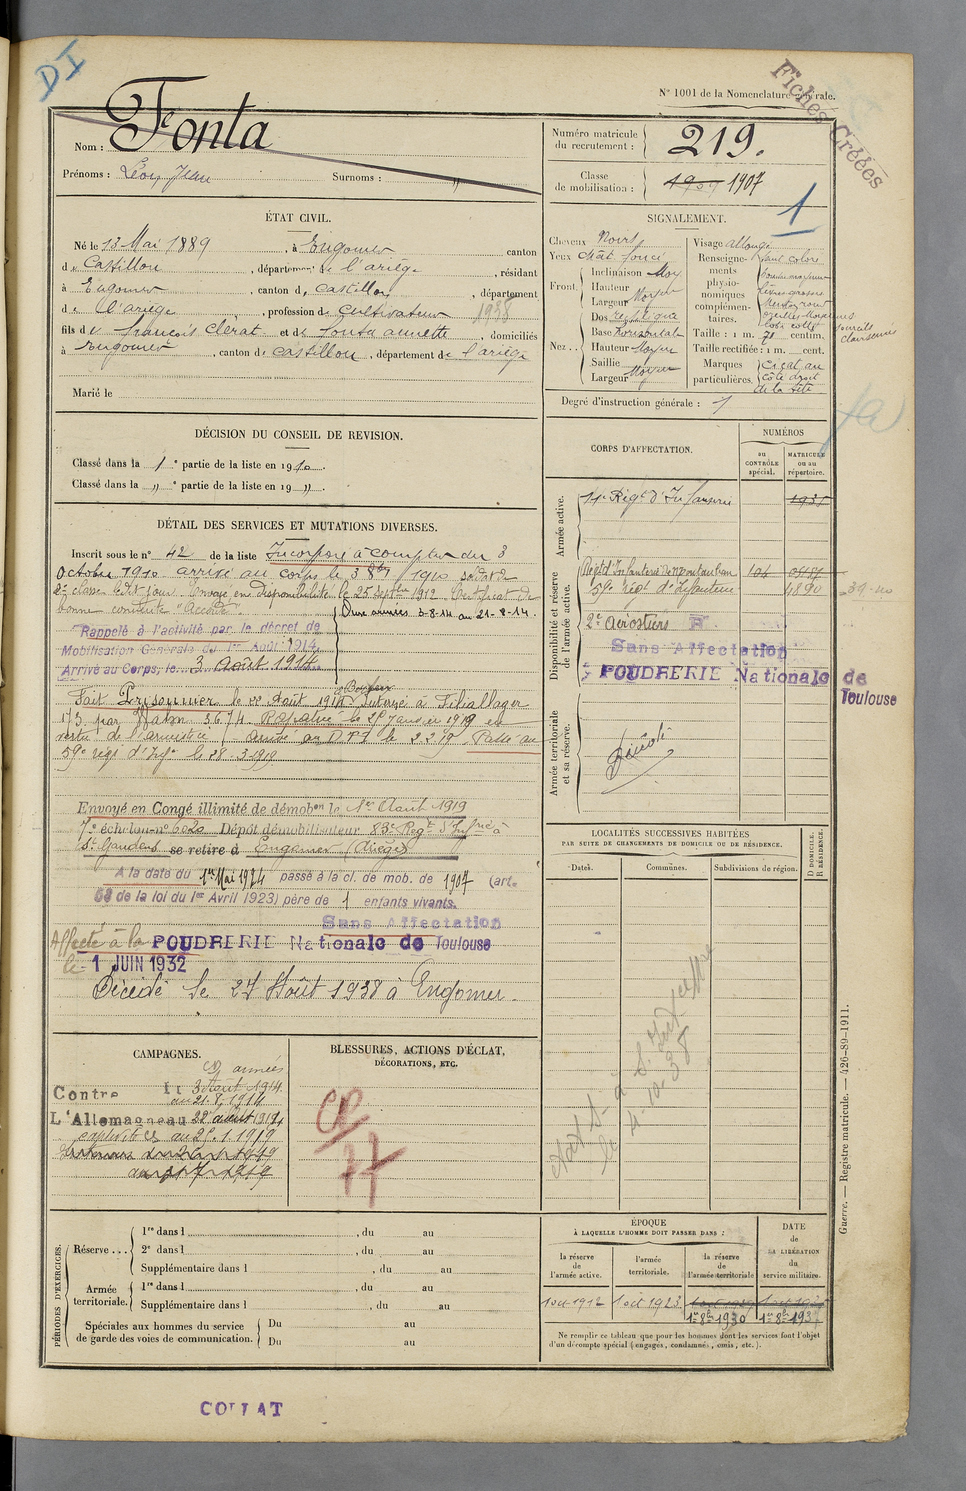 DI
N° 1001 de la Nomenclature générale.
Fiches Créées
Nom : Fonta
Prénoms : Léon Jean Surnoms : "
Numéro matricule du recrutement : 219.
Classe de mobilisation : 1909 1907
1
ÉTAT CIVIL.
Né le 13 Mai 1889, à Engomer canton
de Castillon, département de l'ariège, résidant
à Engomer, canton de Castillon, département
de l'ariège, profession de cultivateur 1938
fils de François Clérat et de Fonta annette, domiciliés
à Engomer, canton de Castillon, département de l'ariège
Marié le
SIGNALEMENT.
Cheveux Noirs
Yeux chât foncé
Front. Inclinaison Moy
Hauteur
Largeur Moyen
Nez .. Dos rectiligne
Base Horizontal
Hauteur Moyen
Saillie
Largeur Moyen
Visage allongé
Renseignements physionomiques complémentaires.
haut coloré
lèvres grosses
Menton rond
sourcils
clairsemés
Taille : 1 m. 71 centim.
Taille rectifiée : 1 m. cent.
Marques particulières. Cicat au
côté droit
de la tête
Degré d'instruction générale : 1
DÉCISION DU CONSEIL DE REVISION.
Classé dans la 1e partie de la liste en 1910.
Classé dans la " e partie de la liste en 19 ".
DÉTAIL DES SERVICES ET MUTATIONS DIVERSES.
Inscrit sous le n° 42 de la liste Incorporé à compter du 3
Octobre 1910 arrivé au corps le 3 8bre 1910 soldat de
2e classe le dit jour. Envoyé en disponibilité le 25 septbre 1912. Certificat de
bonne conduite "Accordé"
Aux armées 3-8-14 au 21-8-14.
Rappelé à l'activité par le décret de
Mobilisation Générale du 1er Août 1914.
Arrivé au Corps, le 3 Août 1914
Fait Prisonnier le 22 Août 1914 Interné à Filiallager
173 par Hahn 3674. Rapatrié le 25 Janvier 1919 en
vertu de l'armistice Arrivé au D.T.I le 2 2 19 Passé au
59e régt d'Infie le 28.3.1919
Envoyé en Congé illimité de démobon le 1er Août 1919
7e échelon n° 6020 Dépôt démobilisateur 83e Régt d'Infrie à
St Gaudens se retire à Engomer (Ariège)
A la date du 1er Mai 1924 passé à la cl. de mob. de 1907 (art.
58 de la loi du 1er Avril 1923) père de 1 enfants vivants.
Sans Affectation
Affecté à la POUDRERIE Nationale de Toulouse
le 1 JUIN 1932
Décédé le 27 Août 1938 à Engomer.
CORPS D'AFFECTATION.
NUMÉROS
au CONTRÔLE spécial.
MATRICULE ou au répertoire.
Armée active.
Disponibilité et réserve de l'armée active.
Armée territoriale et sa réserve.
Régt d'Infanterie
Régt d'Infanterie de Montauban 104
59e régt d'Infanterie 4890
2e Aérostiers
Sans Affectation
POUDRERIE Nationale de
Toulouse
LOCALITÉS SUCCESSIVES HABITÉES
PAR SUITE DE CHANGEMENTS DE DOMICILE OU DE RÉSIDENCE.
Dates.
Communes.
Subdivisions de région.
D DOMICILE.
R RÉSIDENCE.
CAMPAGNES.
aux armées
Contre
L'Allemagne
du 3 Août 1914
au 21.8.1914
du 22 août 1914
au 25.1.1919
BLESSURES, ACTIONS D'ÉCLAT,
DÉCORATIONS, ETC.
le 4-10-38
PÉRIODES D'EXERCICES.
Réserve ...
1re dans l , du au
2e dans l , du au
Supplémentaire dans l , du au
Armée territoriale.
1re dans l , du au
Supplémentaire dans l , du au
Spéciales aux hommes du service de garde des voies de communication.
Du au
Du au
ÉPOQUE
À LAQUELLE L'HOMME DOIT PASSER DANS :
la réserve de l'armée active.
l'armée territoriale.
la réserve de l'armée territoriale
DATE DE LA LIBÉRATION du service militaire.
1 oct 1912 1 oct 1923
1er 8bre 1930 1er 8bre 1937
Ne remplir ce tableau que pour les hommes dont les services font l'objet
d'un décompte spécial (engagés, condamnés, omis, etc.).
Guerre. — Registre matricule. — 426-89-1911.
COLLAT